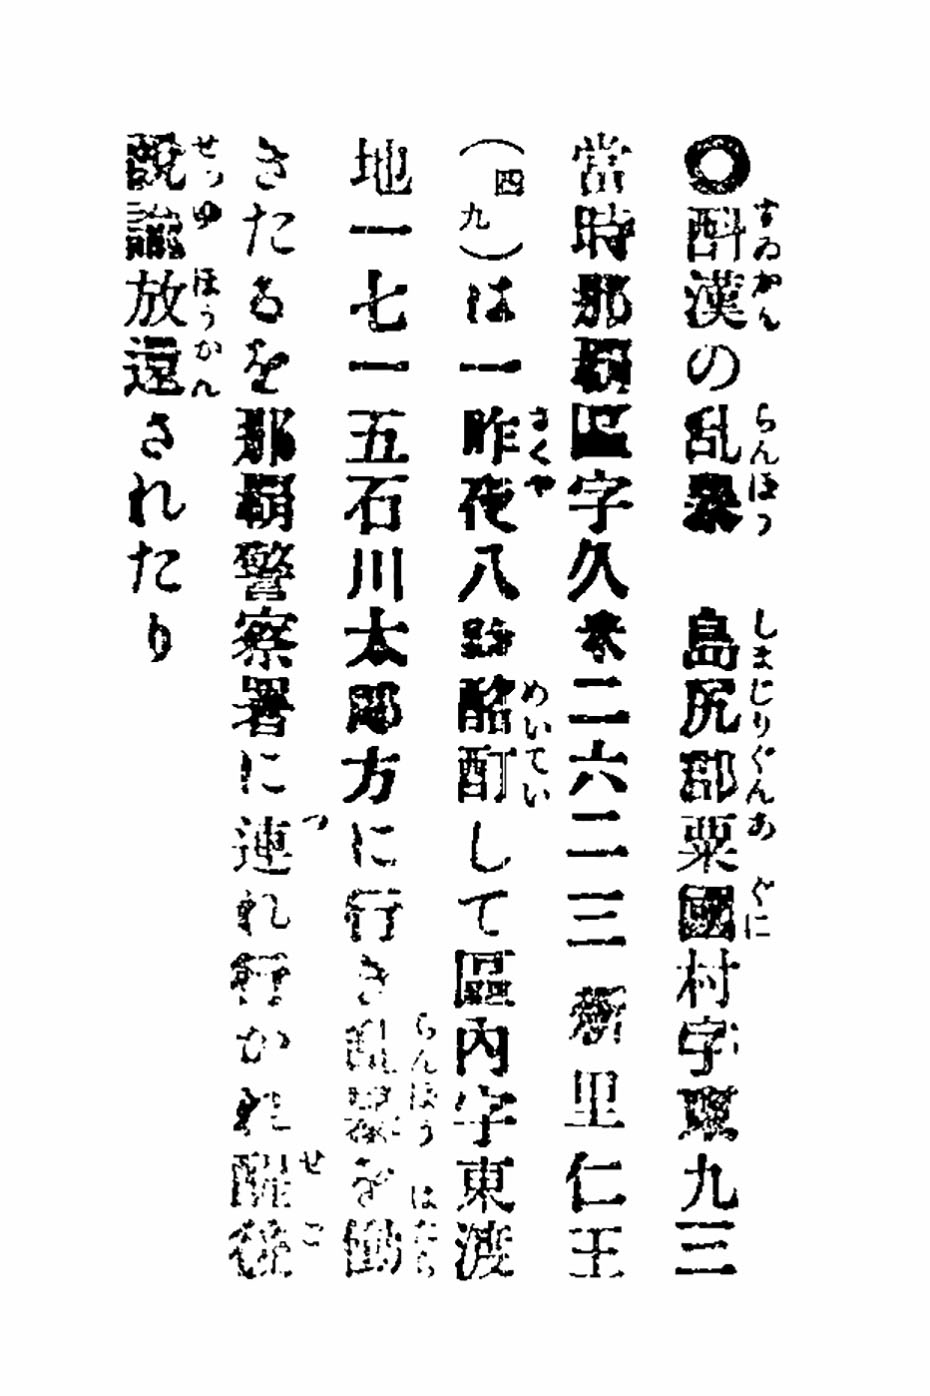 ○酔漢の乱暴　島尻郡粟國村字東九三
當時那覇區字久米二六二三新里仁王
（四九）は一昨夜八時酩酊して區内字東渡
地一七一五石川太郎方に行き乱暴を働
きたるを那覇警察署に連れ行かれ醒後
説諭放還されたり